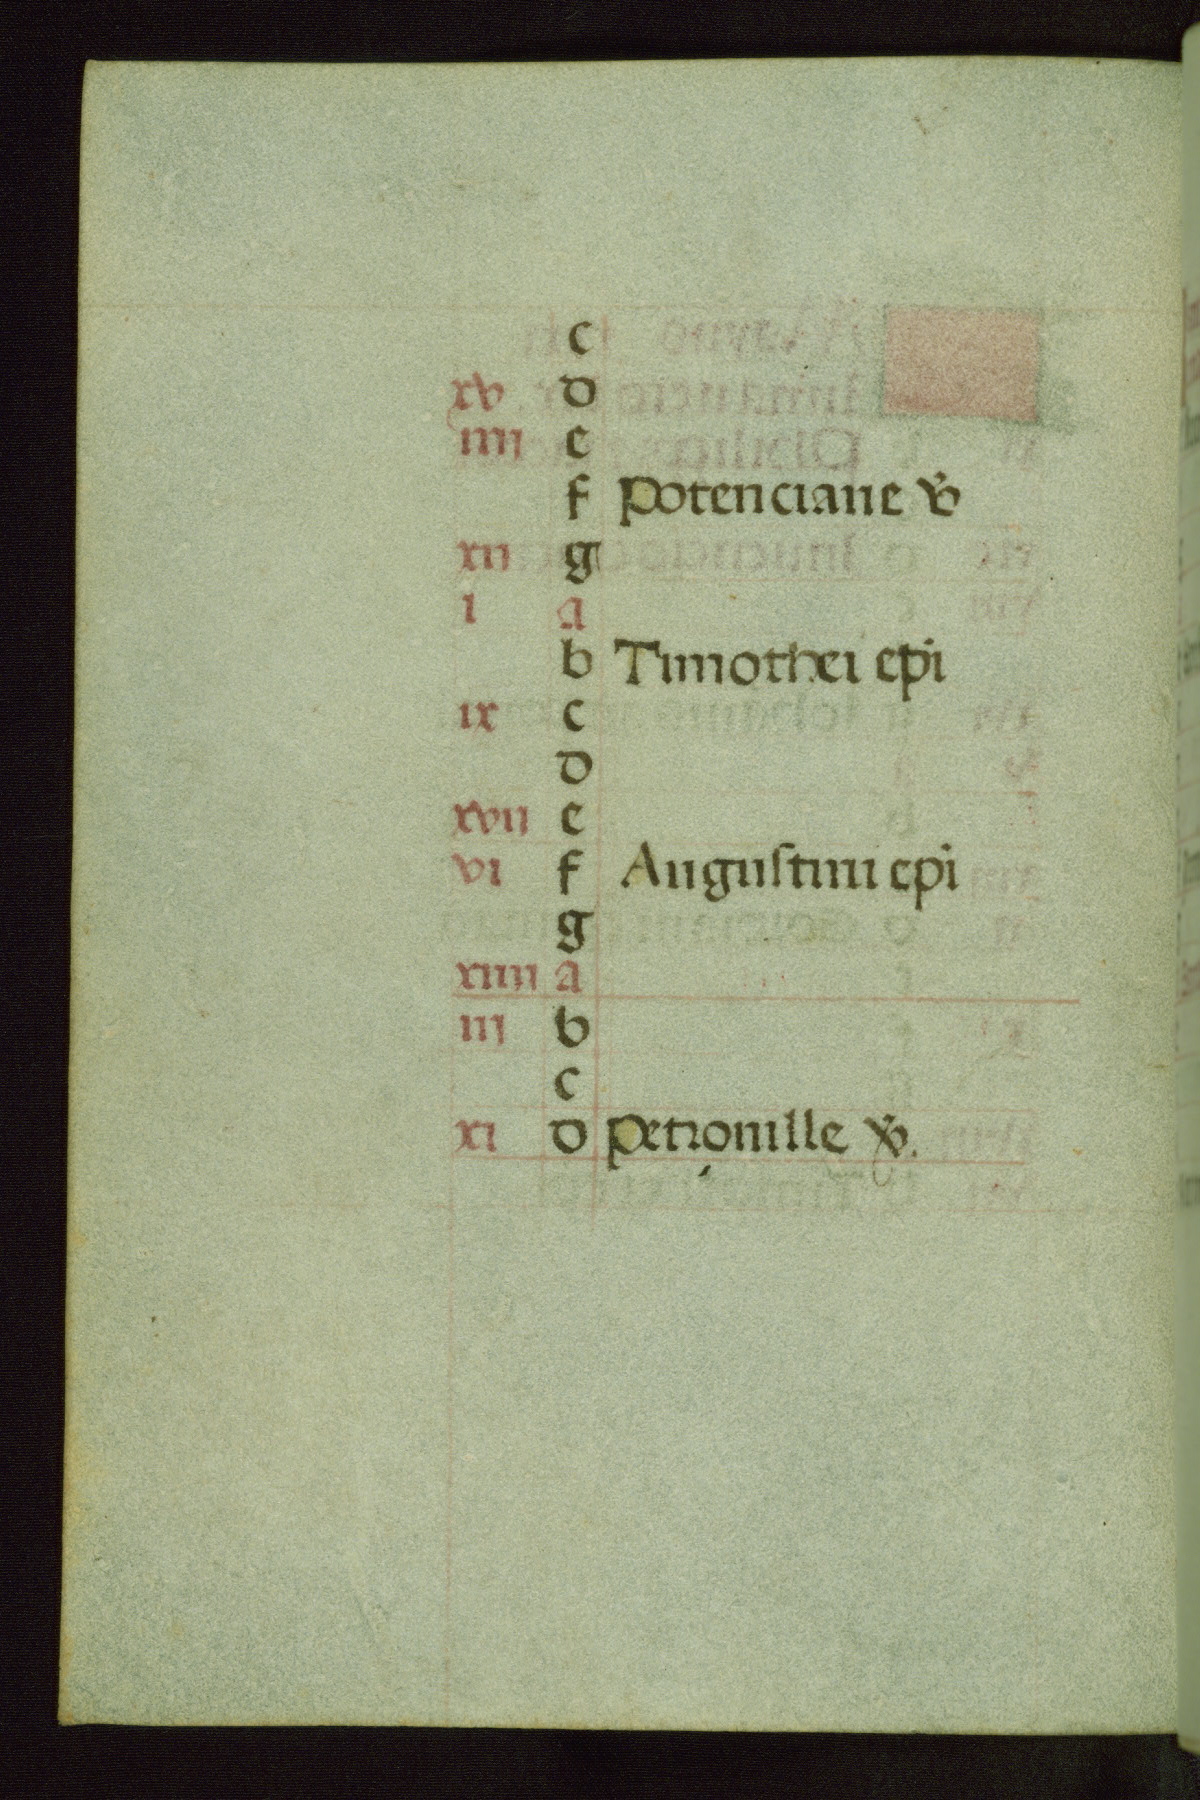 c
xv d
iiij e
f Potenciane v̄
xij g
i A
b Timothei epi
ix c
d
xvij e
vi f Augustini epi
g
xiiij A
iij b
c
xi d Petronille v̄.